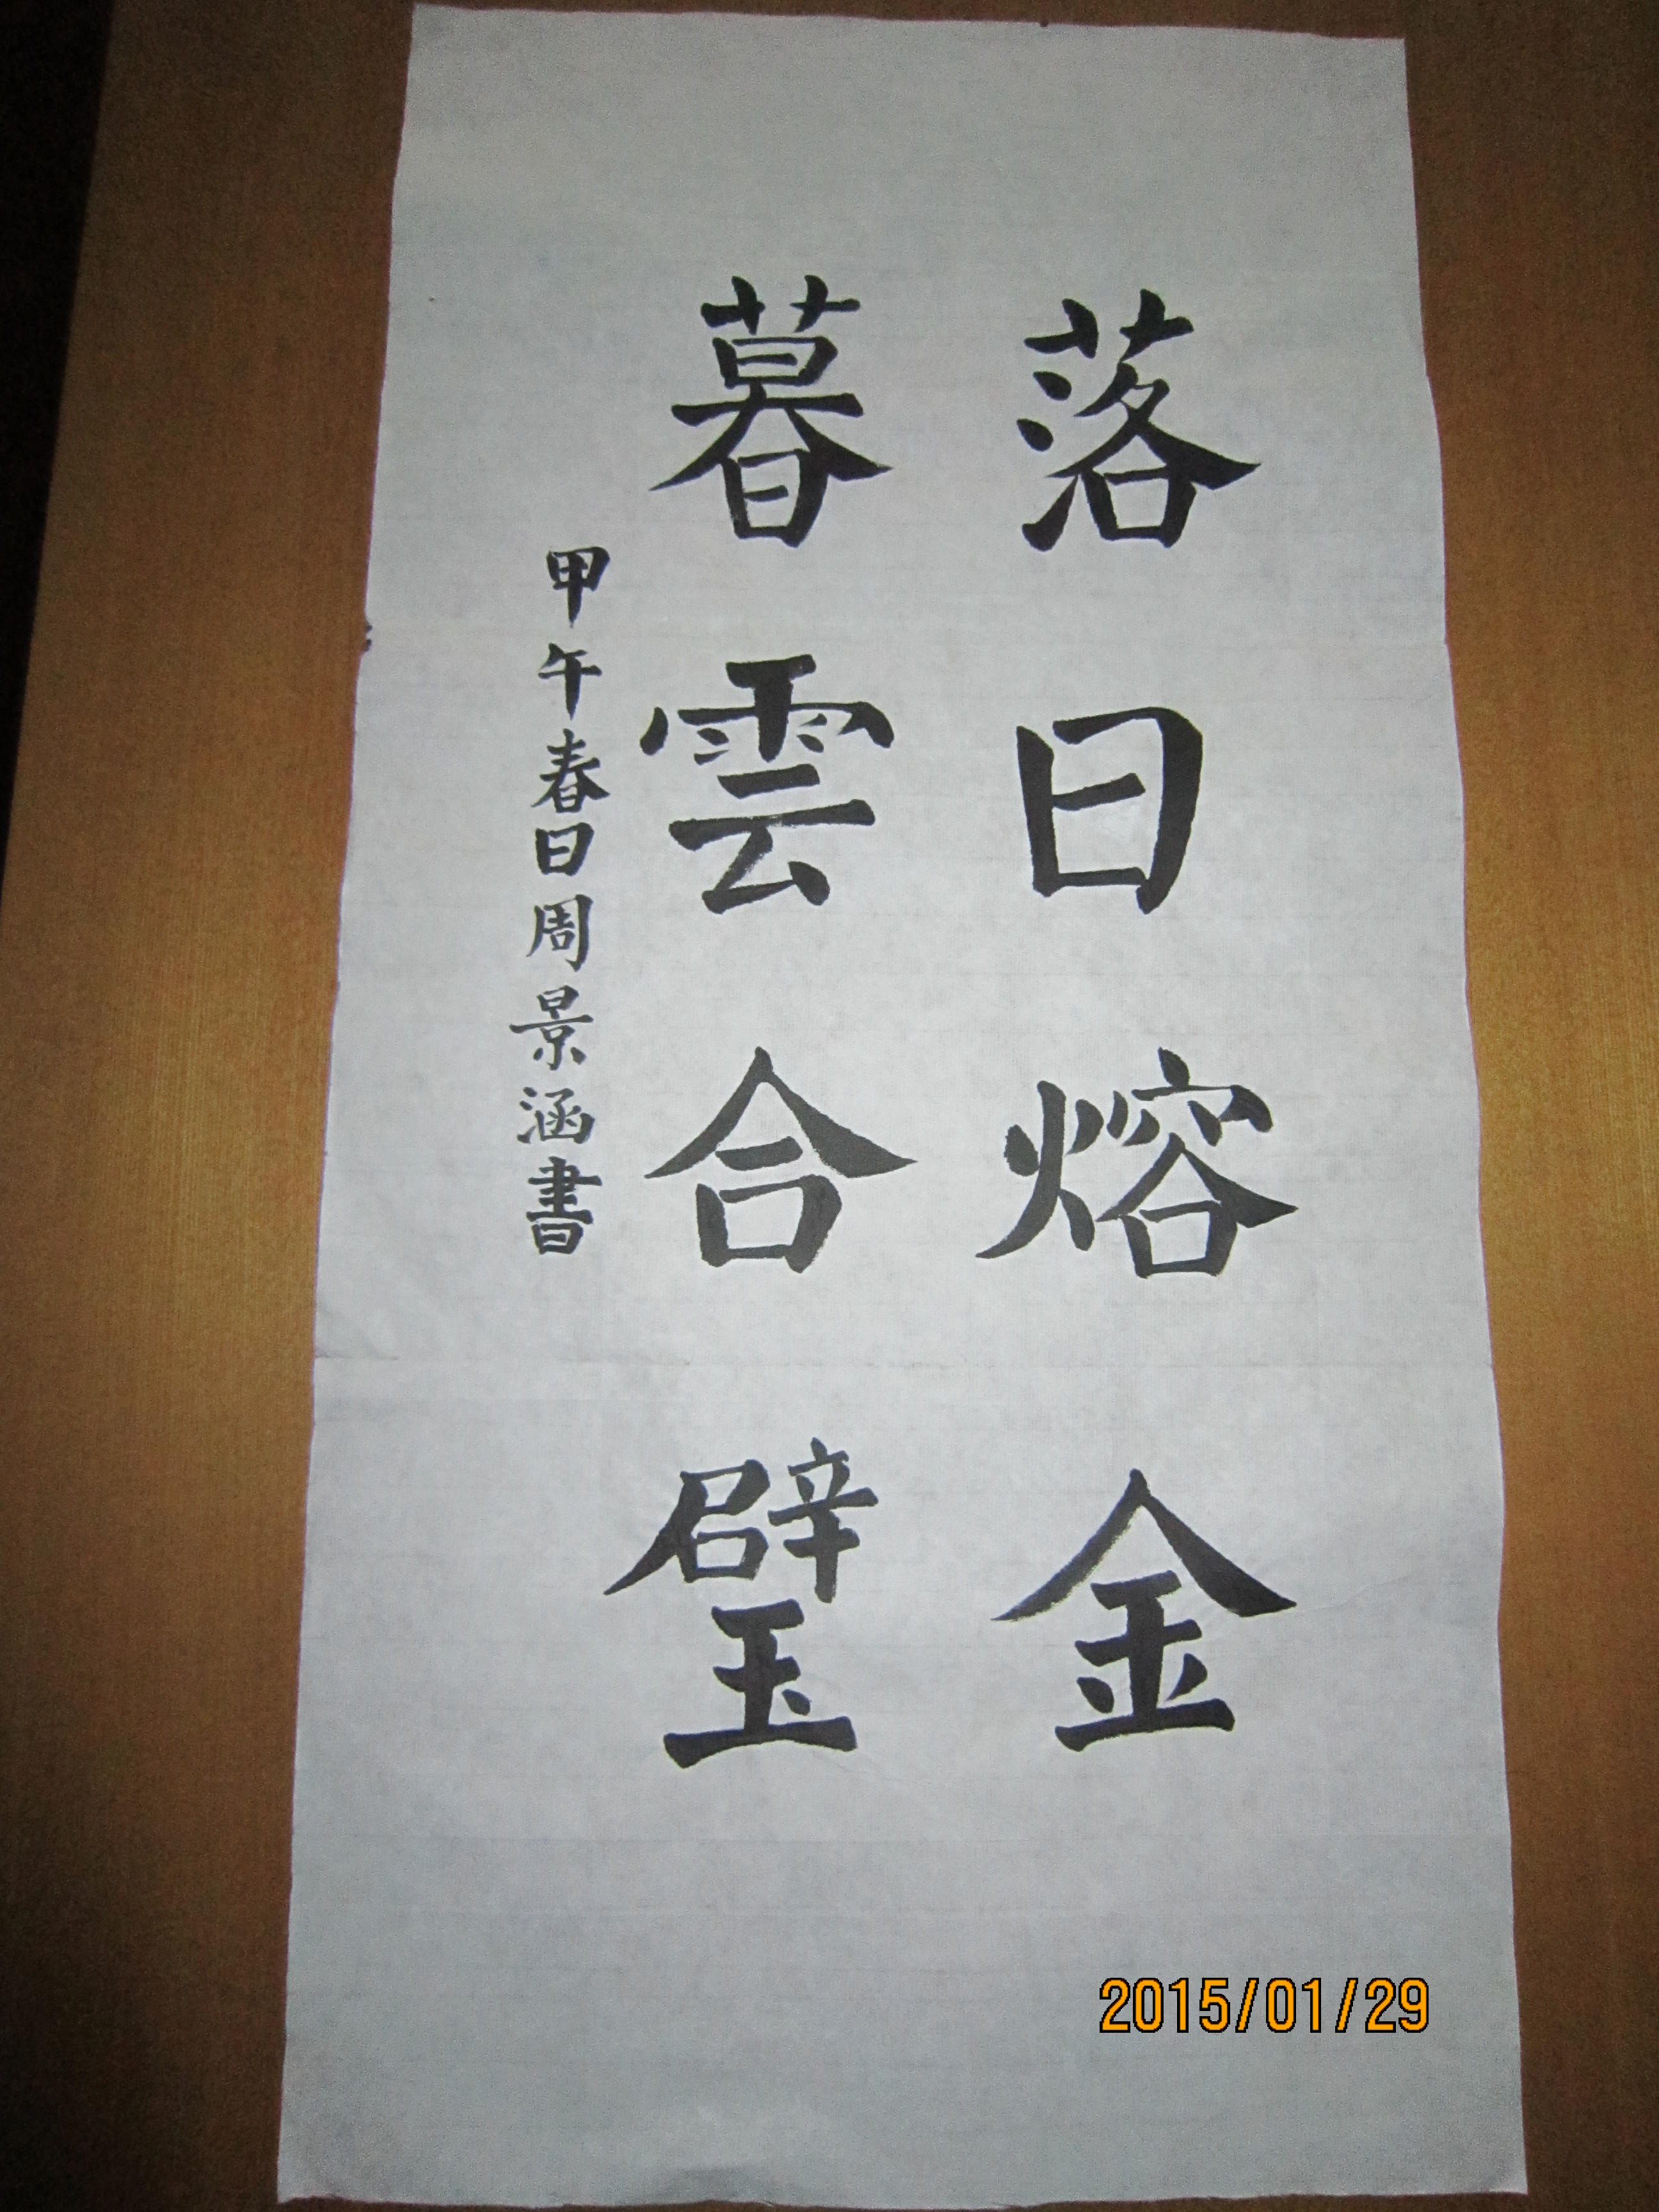 落日熔金
暮雲合璧
甲午春日周景涵書
2015/01/29